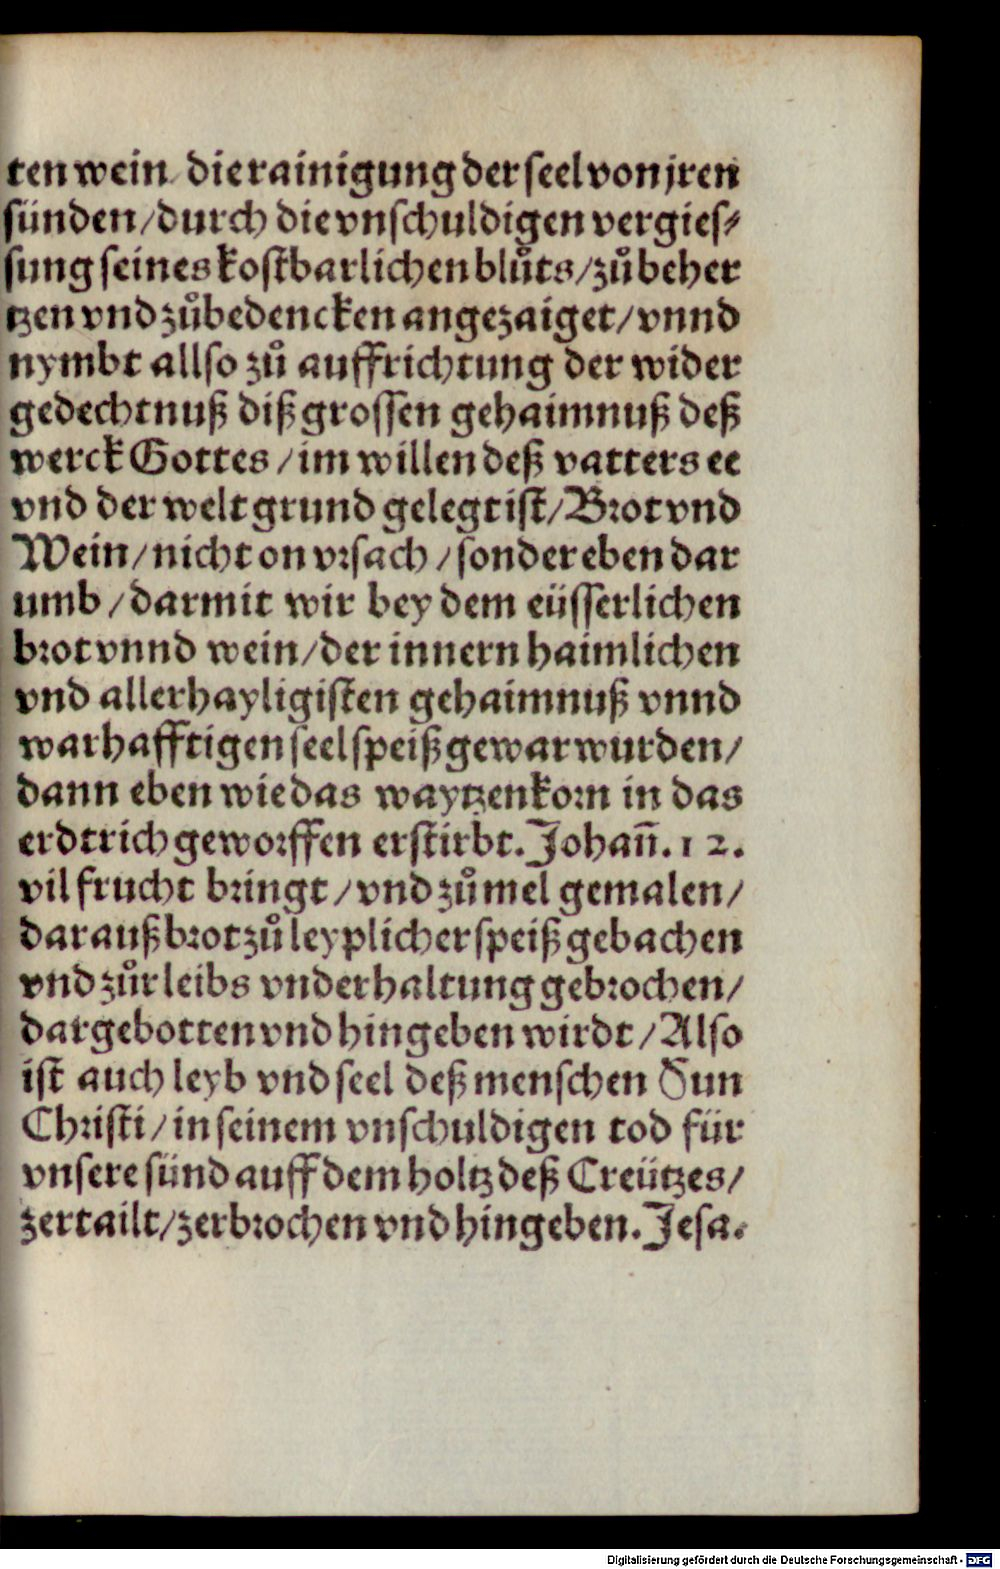 ten wein die rainigung der seel von jren
sünden / durch die vnschuldigen vergies⸗
sung seines kostbarlichen blůts / zů beher
tzen vnd zů bedencken angezaiget / vnnd
nymbt allso zů auffrichtung der wider
gedechtnuß diß grossen gehaimnuß deß
werck Gottes / im willen deß vatters ee
vnd der welt grund gelegt ist / Brot vnd
Wein / nicht on vrsach / sonder eben dar
umb / darmit wir bey dem eüsserlichen
brot vnnd wein / der innern haimlichen
vnd allerhayligisten gehaimnuß vnnd
warhafftigen seelspeiß gewar wurden /
dann eben wie das waytzenkorn in das
erdtrich geworffen erstirbt. Johañ. 12.
vil frucht bringt / vnd zů mel gemalen /
darauß brot zů leyplicher speiß gebachen
vnd zůr leibs vnderhaltung gebrochen /
dargebotten vnd hingeben wirdt / Also
ist auch leyb vnd seel deß menschen Sun
Christi / in seinem vnschuldigen tod für
vnsere sünd auff dem holtz deß Creützes /
zertailt / zerbrochen vnd hingeben. Jesa.
Digitalisierung gefördert durch die Deutsche Forschungsgemeinschaft - DFG